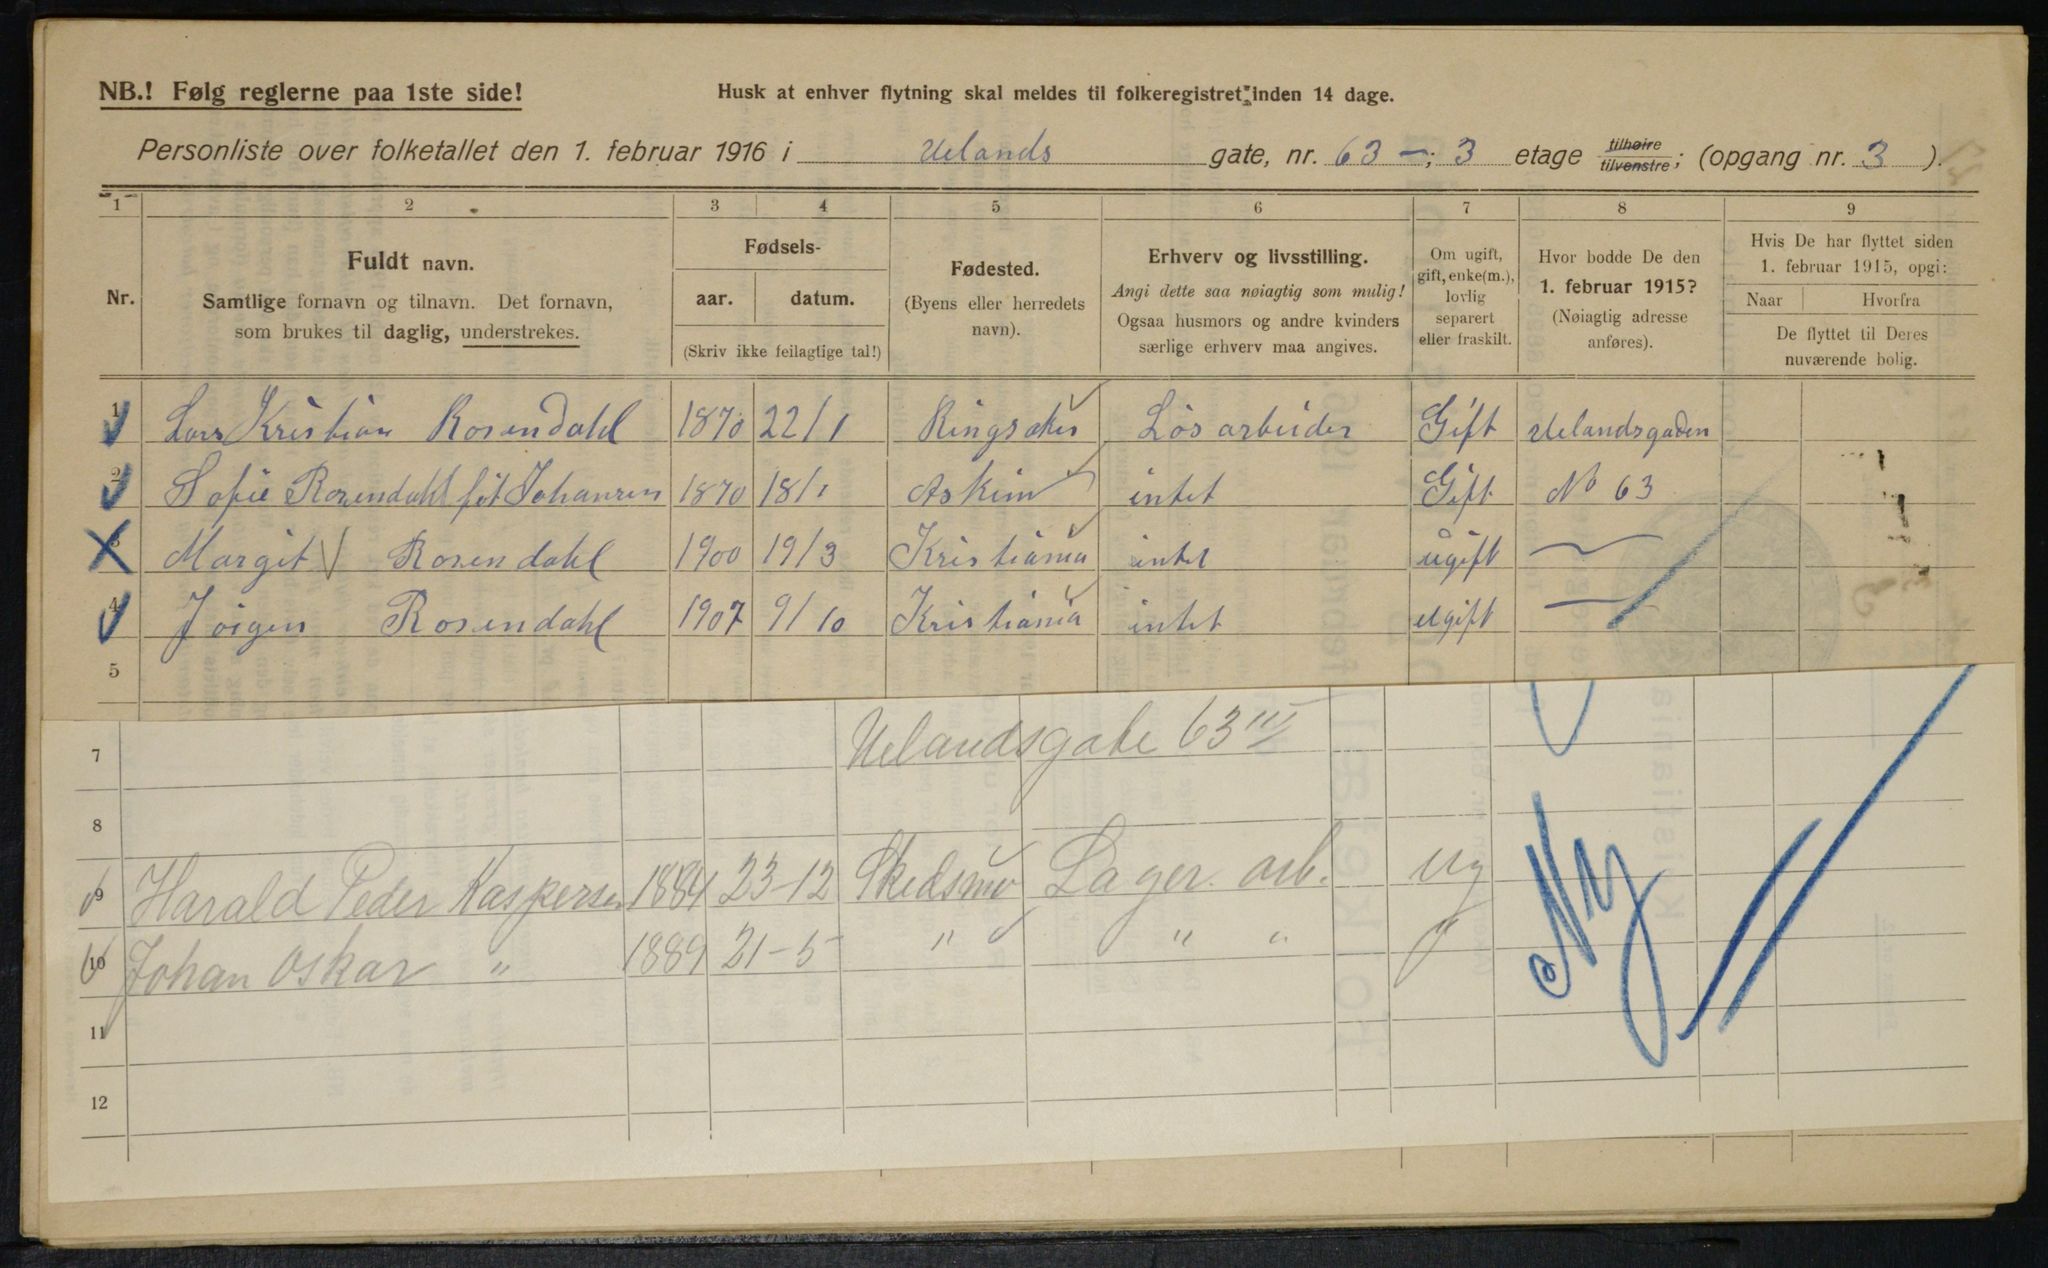 NB.! Følg reglerne paa 1ste side!
Husk at enhver flytning skal meldes til folkeregistret inden 14 dage.
Personliste over folketallet den 1. februar 1916 i Uelands gate, nr. 63 —; 3 etage tilhøire tilvenstre; (opgang nr. 3 ).
1 2 3 4 5 6 7 8 9
Nr.
Fuldt navn.
Samtlige fornavn og tilnavn. Det fornavn,
som brukes til daglig, understrekes.
Fødsels-
aar. datum.
(Skriv ikke feilagtige tal!)
Fødested.
(Byens eller herredets
navn).
Erhverv og livsstilling.
Angi dette saa nøiagtig som mulig!
Ogsaa husmors og andre kvinders
særlige erhverv maa angives.
Om ugift,
gift, enke(m.),
lovlig
separert
eller fraskilt.
Hvor bodde De den
1. februar 1915?
(Nøiagtig adresse
anføres).
Hvis De har flyttet siden
1. februar 1915, opgi:
Naar Hvorfra
De flyttet til Deres
nuværende bolig.
1 Lars Kristian Rosendahl 1870 22/1 Ringsaker Løsarbeider Gift Uelandsgaden
2 Sofie Rosendahl føt Johansen 1870 18/1 Askim intet Gift No 63
3 Margit Rosendahl 1900 19/3 Kristiania intet ugift —
4 Jørgen Rosendahl 1907 9/10 Kristiania intet ugift —
5
7 Uelandsgate 63 III
8
9 Harald Peder Kaspersen 1884 23-12 Skedsmo Lager. arb. ug
10 Johan Oskar " 1889 21-5 " " "
Ny
11
12